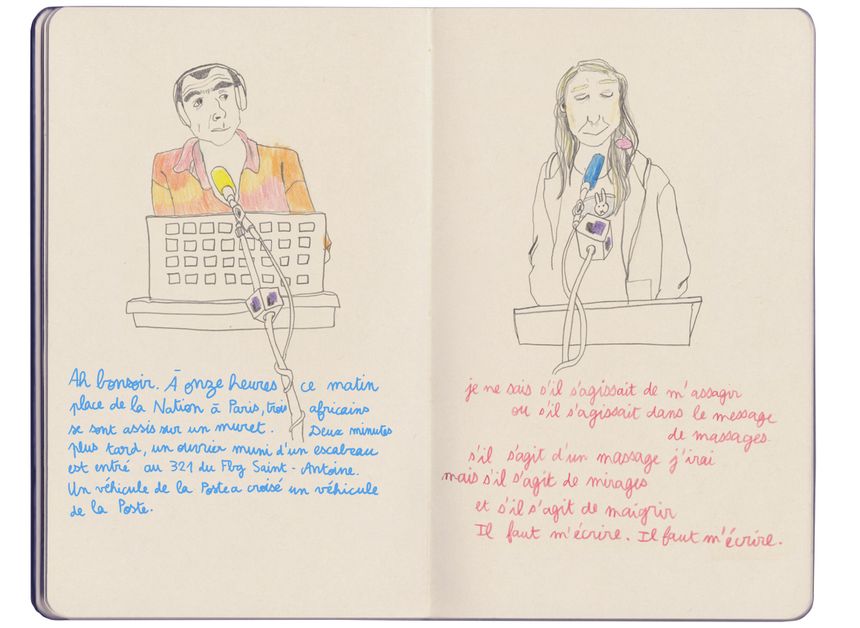 Ah bonsoir. À onze heures ce matin
place de la Nation à Paris, trois africains
se sont assis sur un muret. Deux minutes
plus tard, un ouvrier muni d'un escabeau
est entré au 321 du Fbg Saint-Antoine.
Un véhicule de la Poste a croisé un véhicule
de la Poste.
je ne sais s'il s'agissait de m'assagir
ou s'il s'agissait dans le message
de massages.
s'il s'agit d'un massage j'irai
mais s'il s'agit de mirages
et s'il s'agit de maigrir
Il faut m'écrire. Il faut m'écrire.